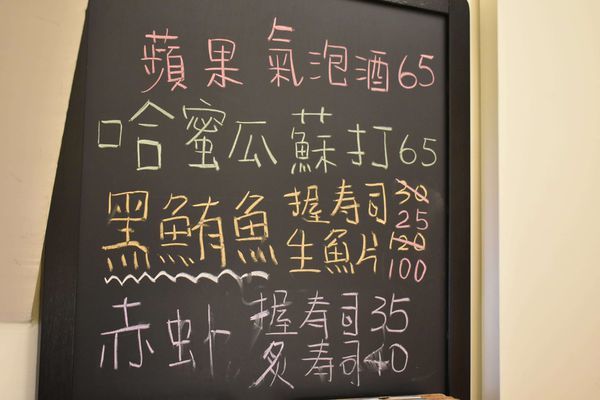 蘋果 氣泡酒 65
哈蜜瓜 蘇打 65
黑鮪魚 握壽司 30 25
生魚片 120 100
赤蚶 握壽司 35
炙壽司 40